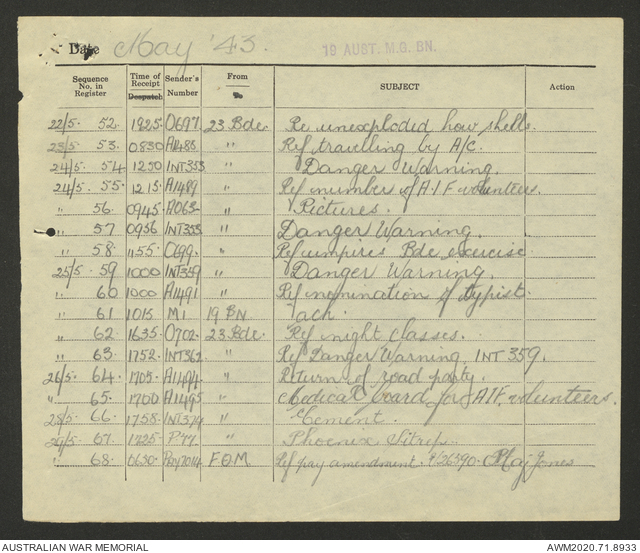 Date May '43. 19 AUST. M.G. BN.
Sequence No. in Register Time of Receipt Despatch Sender's Number From To SUBJECT Action
22/5. 52. 1925 O697. 23 Bde. Re unexploded how shells.
23/5. 53. 0830 A1485 " Ref travelling by A/C.
24/5. 54 1230 INT353 " Danger Warning.
24/5. 55. 1215 A1489 " Ref number of A.I.F. volunteers.
" 56. 0945 A063 " Pictures.
" 57 0956 INT355 " Danger Warning.
" 58. 1155. O699. " Ref umpires Bde exercise.
25/5. 59 1000 INT359 " Danger Warning.
" 60 1000 A1491 " Ref nomination of typist.
" 61 1015 M1 19 BN ack.
" 62 1635 O702 23 Bde. Ref night classes.
" 63. 1752 INT362 " Ref Danger Warning INT 359.
26/5. 64. 1705. A1494 " Return of road party.
" 65. 1700 A1495 " Medical board for AIF. volunteers.
28/5 66. 1758 INT379 " Cement.
67. 1725 " Phoenix Sitrep.
" 68. 0630 F.O.M. Ref pay amendment. Maj Jones
AUSTRALIAN WAR MEMORIAL AWM2020.71.8933